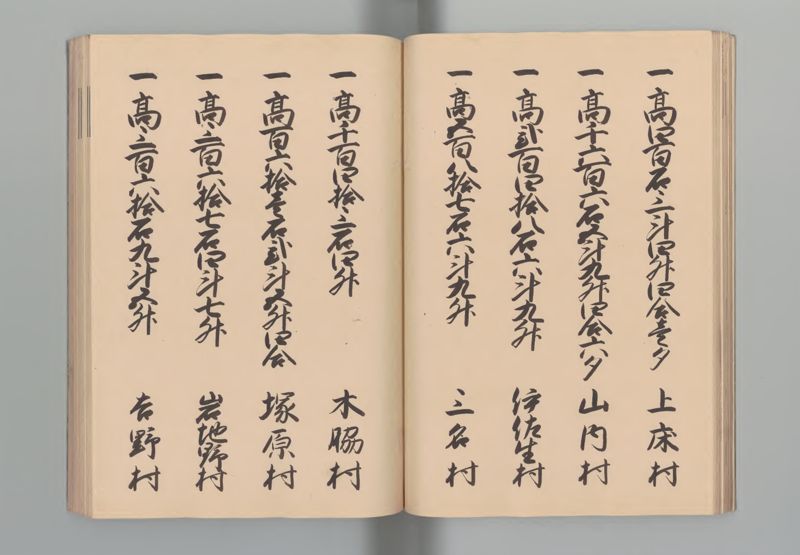 一高四百石三斗四升四合壱夕 上床村
一高千六百六石五斗九升四合六夕 山内村
一高弐百四拾八石六斗九升 伊佐生村
一高五百八拾七石六斗九升 三名村
一高千百四拾三石四升 木脇村
一高百六拾壱石弐斗五升四合 塚原村
一高三百六拾七石四斗七升 岩地野村
一高三百六拾石九斗五升 吉野村